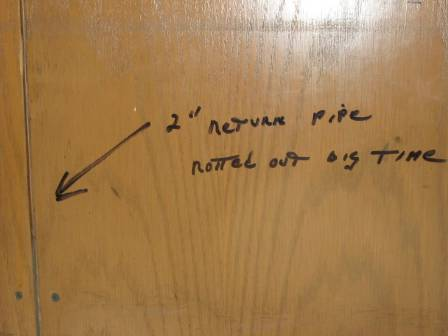 2" RETURN PIPE
ROTTED OUT BIG TIME